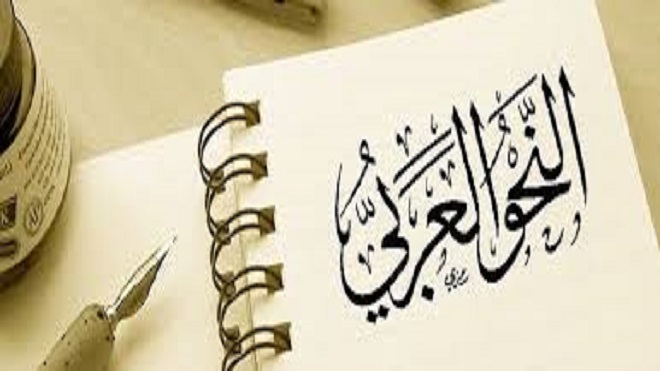 النَّحْوُ العَرَبيُّ